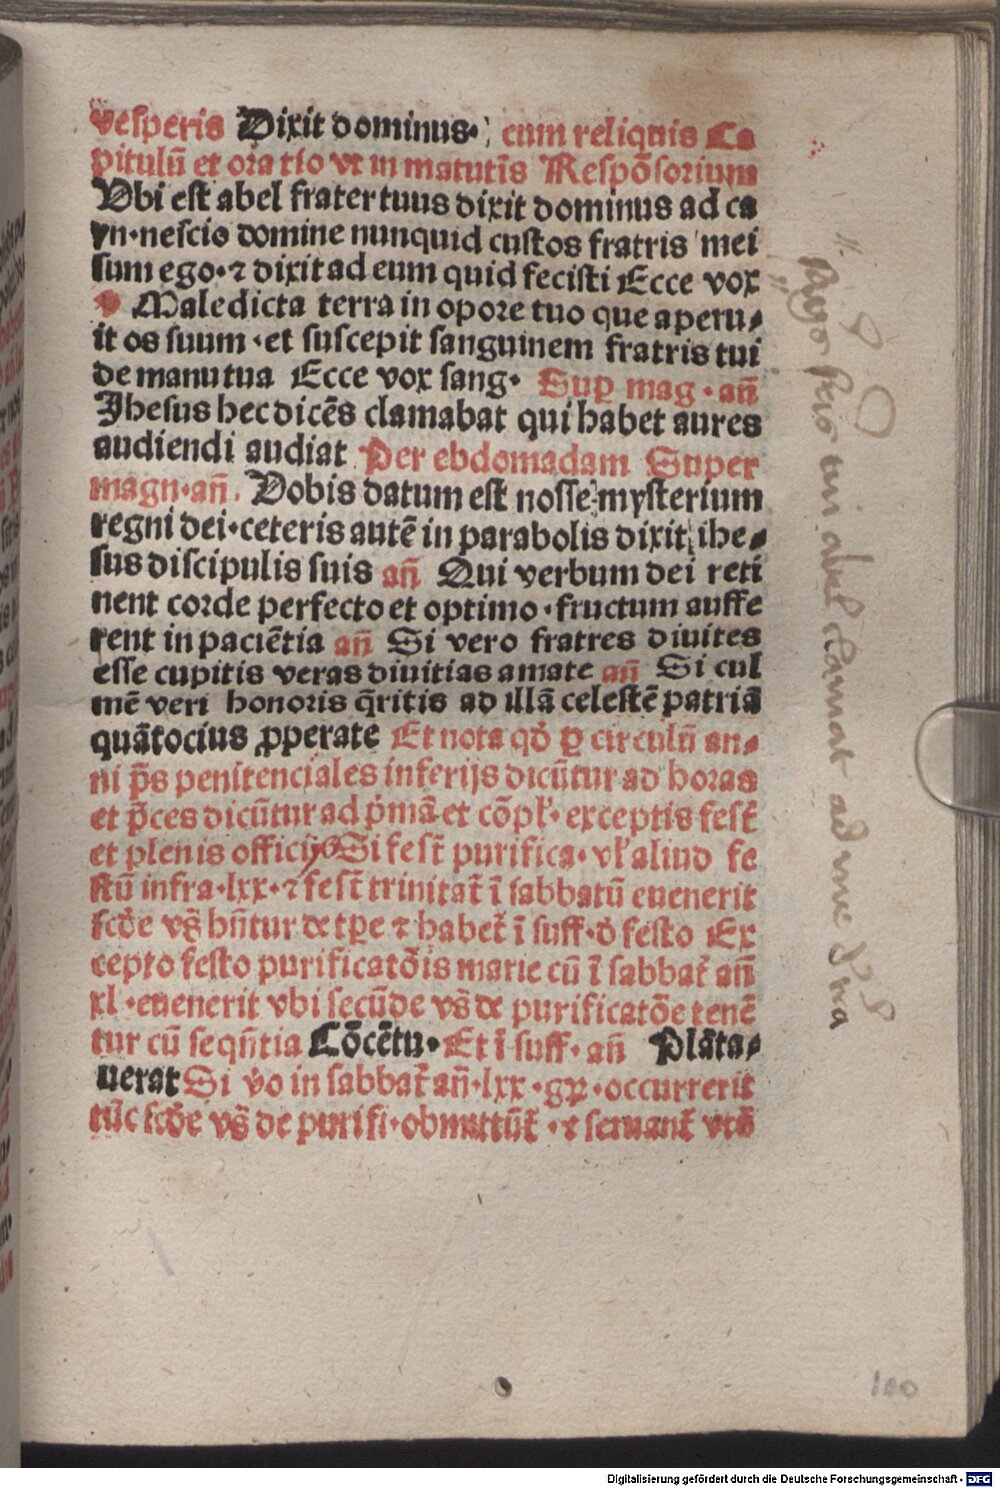 vesperis Dixit dominus· cum reliquis Ca
pitulū et oratio vt in matutīs Respōsorium
Vbi est abel frater tuus dixit dominus ad ca
yn·nescio domine nunquid custos fratris mei
sum ego·⁊ dixit ad eum quid fecisti Ecce vox
Maledicta terra in opore tuo que aperu⸗
it os suum·et suscepit sanguinem fratris tui
de manu tua Ecce vox sang· Sup mag·an̄
Jhesus hec dicēs clamabat qui habet aures
audiendi audiat Per ebdomadam Super
magn·an̄· Vobis datum est nosse mysterium
regni dei·ceteris autē in parabolis dixit ihe⸗
sus discipulis suis an̄ Qui verbum dei reti
nent corde perfecto et optimo·fructum auffe
rent in paciētia an̄ Si vero fratres diuites
esse cupitis veras diuitias amate an̄ Si cul
mē veri honoris q̄ritis ad illā celestē patriā
quātocius ꝓperate Et nota qđ ꝑ circulū an⸗
ni p̄s penitenciales inferijs dicūtur ad horas
et p̄ces dicūtur ad pͥmā et cōpl̕· exceptis fest̄
et plenis officijs Si fest̄ purifica· vl̕ aliud fe
stū infra·lxx·⁊ fest̄ trinitat̄ ī sabbatū euenerit
scđe vs̄ hn̄tur de tp̄e ⁊ habet̄ ī suff·đ festo Ex
cepto festo purificatōis marie cū ī sabbat̄ an̄
xl·euenerit vbi secūde vs̄ de purificatōe tenē
tur cū seqn̄tia Cōcētu· Et ī suff· an̄ Plāta⸗
uerat Si v̊o in sabbat̄ an̄·lxx·gͣ·occurrerit
tūc scđe vs̄ de purifi·obmittūt̄·⁊ seruant̄ vtđ
abel clamat ad me
100
Digitalisierung gefördert durch die Deutsche Forschungsgemeinschaft - DFG